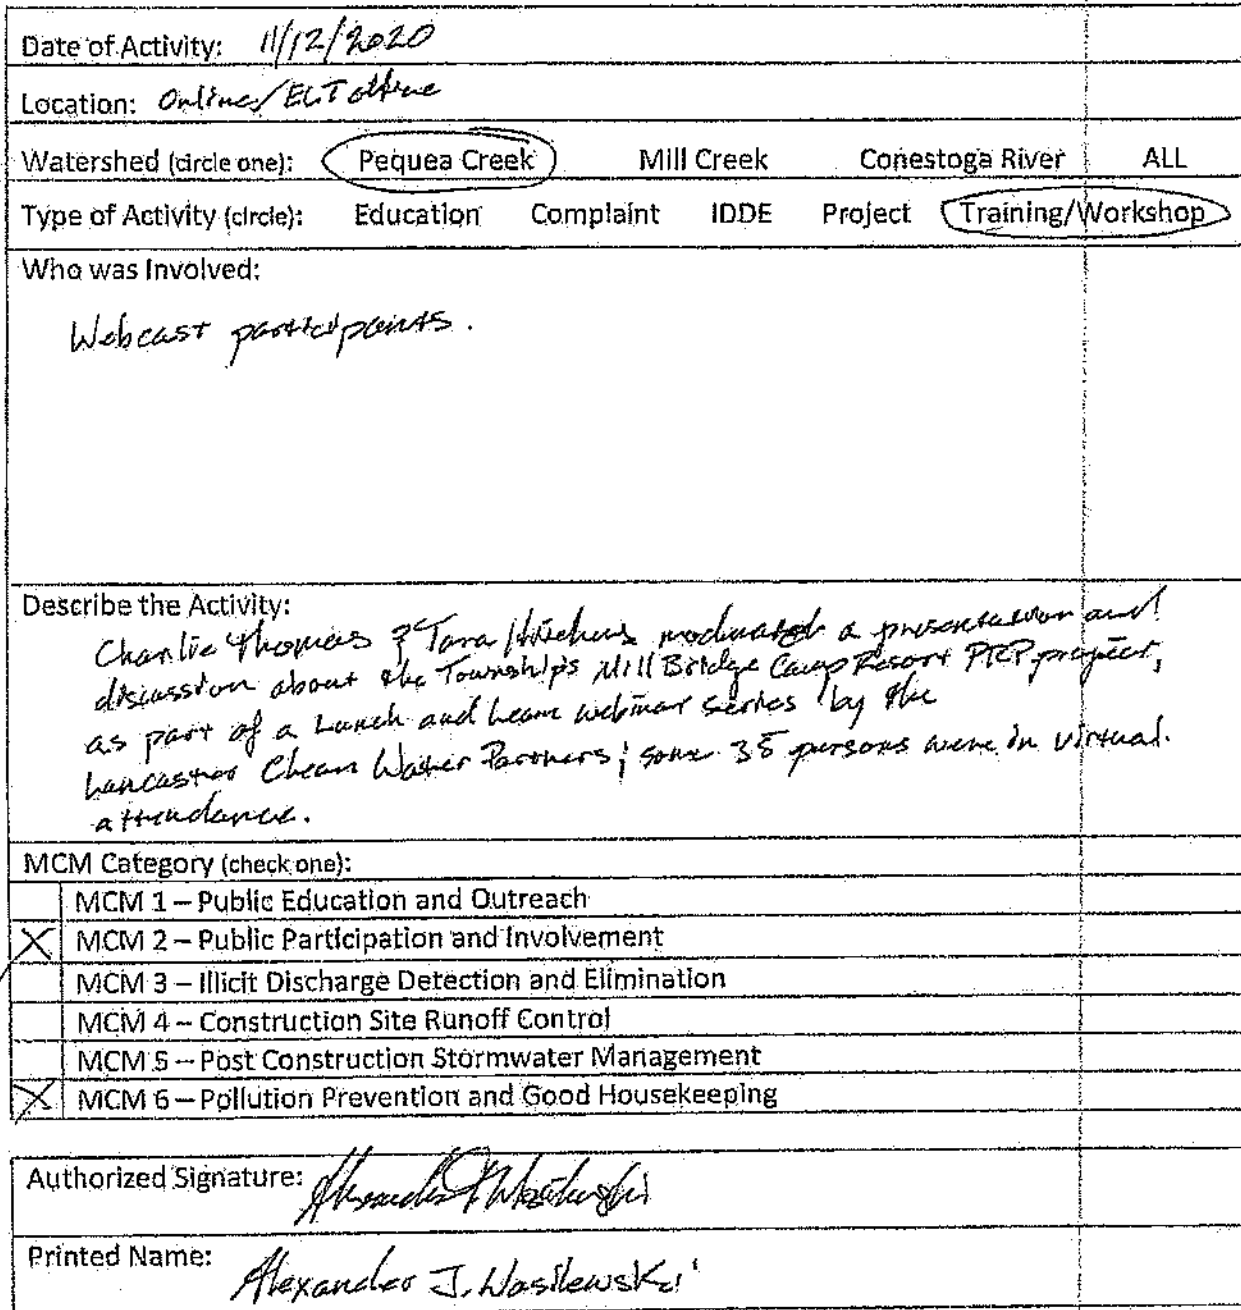 Date of Activity: 11/12/2020
Location: Online/ELT office
Watershed (circle one): Pequea Creek Mill Creek Conestoga River ALL
Type of Activity (circle): Education Complaint IDDE Project Training/Workshop
Who was Involved:
Webcast participants.
Describe the Activity:
Charlie Thomas & Tara moderated a presentation and
discussion about the Township's Mill Bridge Camp Resort project,
as part of a Lunch and Learn webinar series by the
Lancaster Clean Water Partners; some 35 persons were in virtual
attendance.
MCM Category (check one):
MCM 1 – Public Education and Outreach
X MCM 2 – Public Participation and Involvement
MCM 3 – Illicit Discharge Detection and Elimination
MCM 4 – Construction Site Runoff Control
MCM 5 – Post Construction Stormwater Management
X MCM 6 – Pollution Prevention and Good Housekeeping
Authorized Signature: Alexander J. Wasilewski
Printed Name: Alexander J. Wasilewski